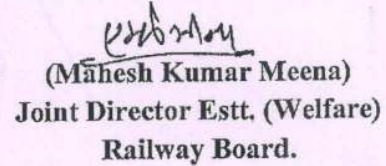 (Mahesh Kumar Meena)
Joint Director Estt. (Welfare)
Railway Board.